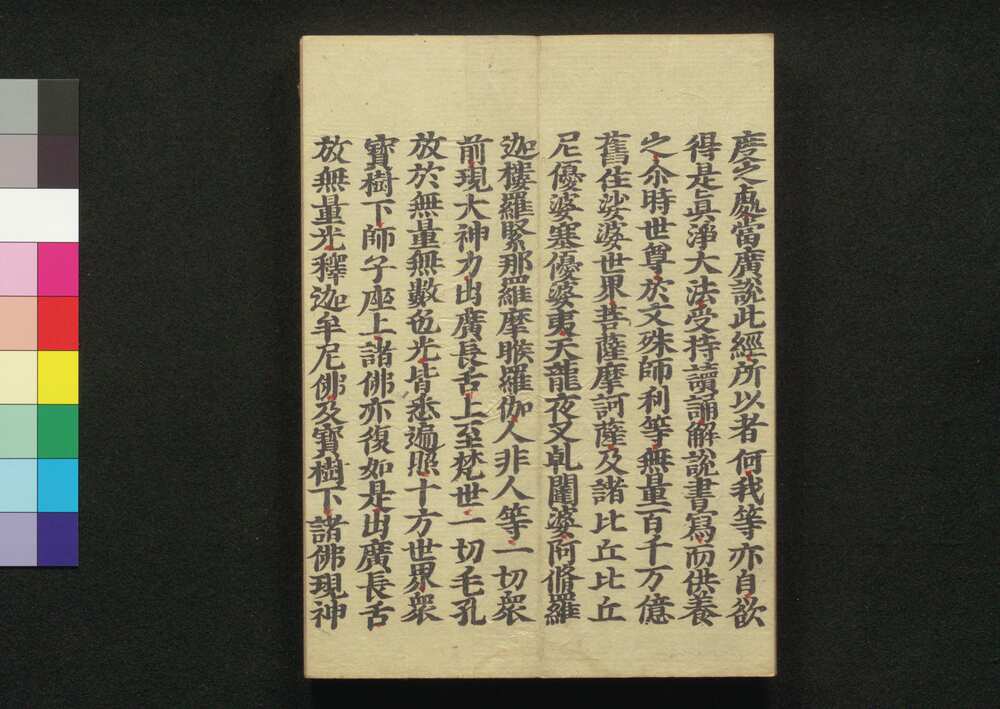 度之處當廣說此經所以者何我等亦自欲
得是真淨大法受持讀誦解說書寫而供養
之尒時世尊於文殊師利等無量百千万億
舊住娑婆世界菩薩摩訶薩及諸比丘比丘
尼優婆塞優婆夷天龍夜叉乹闥婆阿脩羅
迦樓羅緊那羅摩睺羅伽人非人等一切衆
前現大神力出廣長舌上至梵世一切毛孔
放於無量無數色光皆悉遍照十方世界衆
寳樹下師子座上諸佛亦復如是出廣長舌
放無量光釋迦牟尼佛及寳樹下諸佛現神